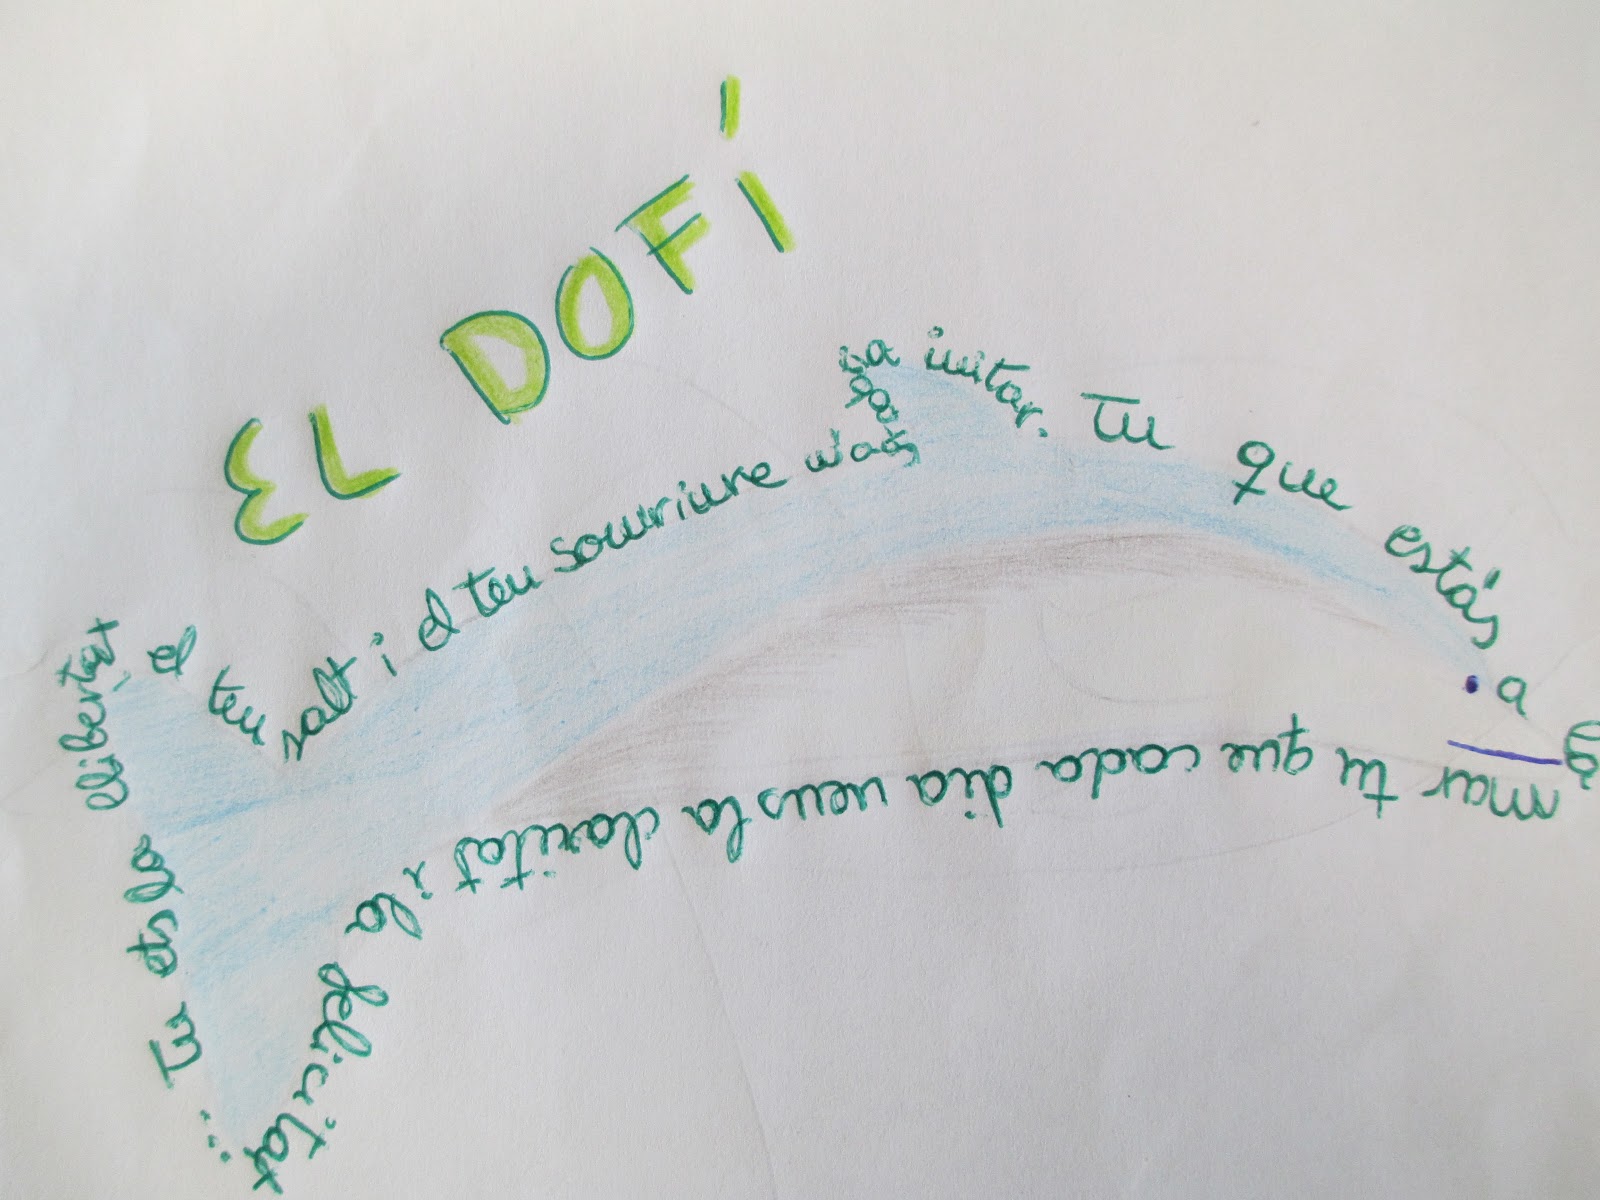 EL DOFÍ
Tu ets la
llibertat,
el teu
salt i el teu somriure m'agrada imitar. Tu que estás a la
mar tu que cada dia veus la claritat i la felicitat...